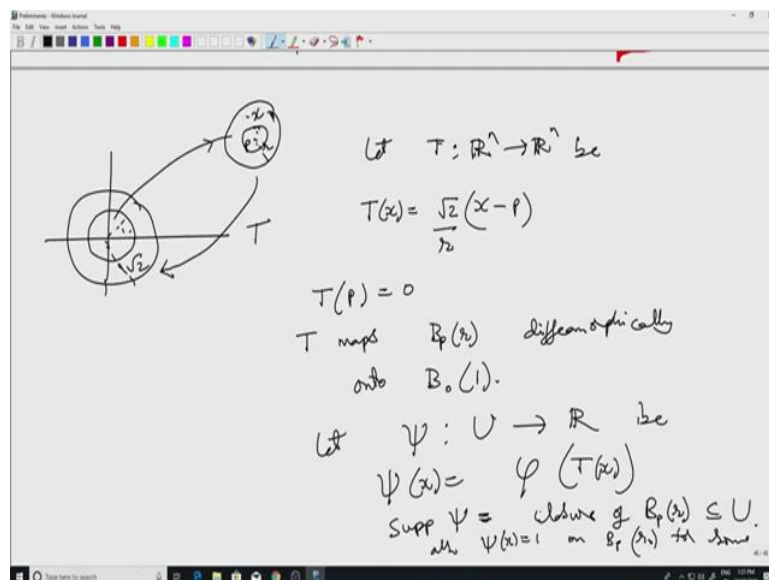 Preliminaries - Windows Journal
File Edit View Insert Actions Tools Help
B I
x
P r
√2
T
Let T : ℝⁿ → ℝⁿ be
T(x) = √2/r (x - p)
T(p) = 0
T maps B_p(r) diffeomorphically
onto B_0(1).
Let ψ : U → ℝ be
ψ(x) = φ(T(x))
supp ψ = closure of B_p(r) ⊆ U.
also ψ(x) = 1 on B_p(r_0) for some
Type here to search
ENG 1:01 PM